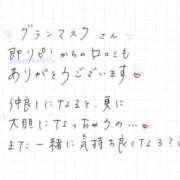 グランマスク さん
即リピ からの口コミも
ありがとうございます
仲良しになると、更に
大胆になっちゃうの…
また一緒に気持ち良くなろ?